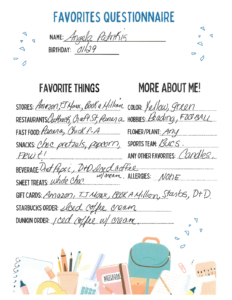 FAVORITES QUESTIONNAIRE
NAME: Angela
BIRTHDAY: 01/29
FAVORITE THINGS
MORE ABOUT ME!
STORES: Amazon, TJ Maxx, Book a Million
COLOR: Yellow, green
RESTAURANTS: Craft St, Panera
HOBBIES: Reading, FOOTBALL
FAST FOOD: Panera, Chick-fil-A
FLOWER/PLANT: Any
SNACKS: Choc pretzels, popcorn,
Fruit!
SPORTS TEAM: Bucs
ANY OTHER FAVORITES: Candles
BEVERAGE: Diet Pepsi, D+D iced coffee
w/cream
ALLERGIES: NONE
SWEET TREATS: white Choc
GIFT CARDS: Amazon, TJ Maxx, Book A Million, Starbs, D+D
STARBUCKS ORDER: iced coffee cream
DUNKIN ORDER: iced coffee w/ cream